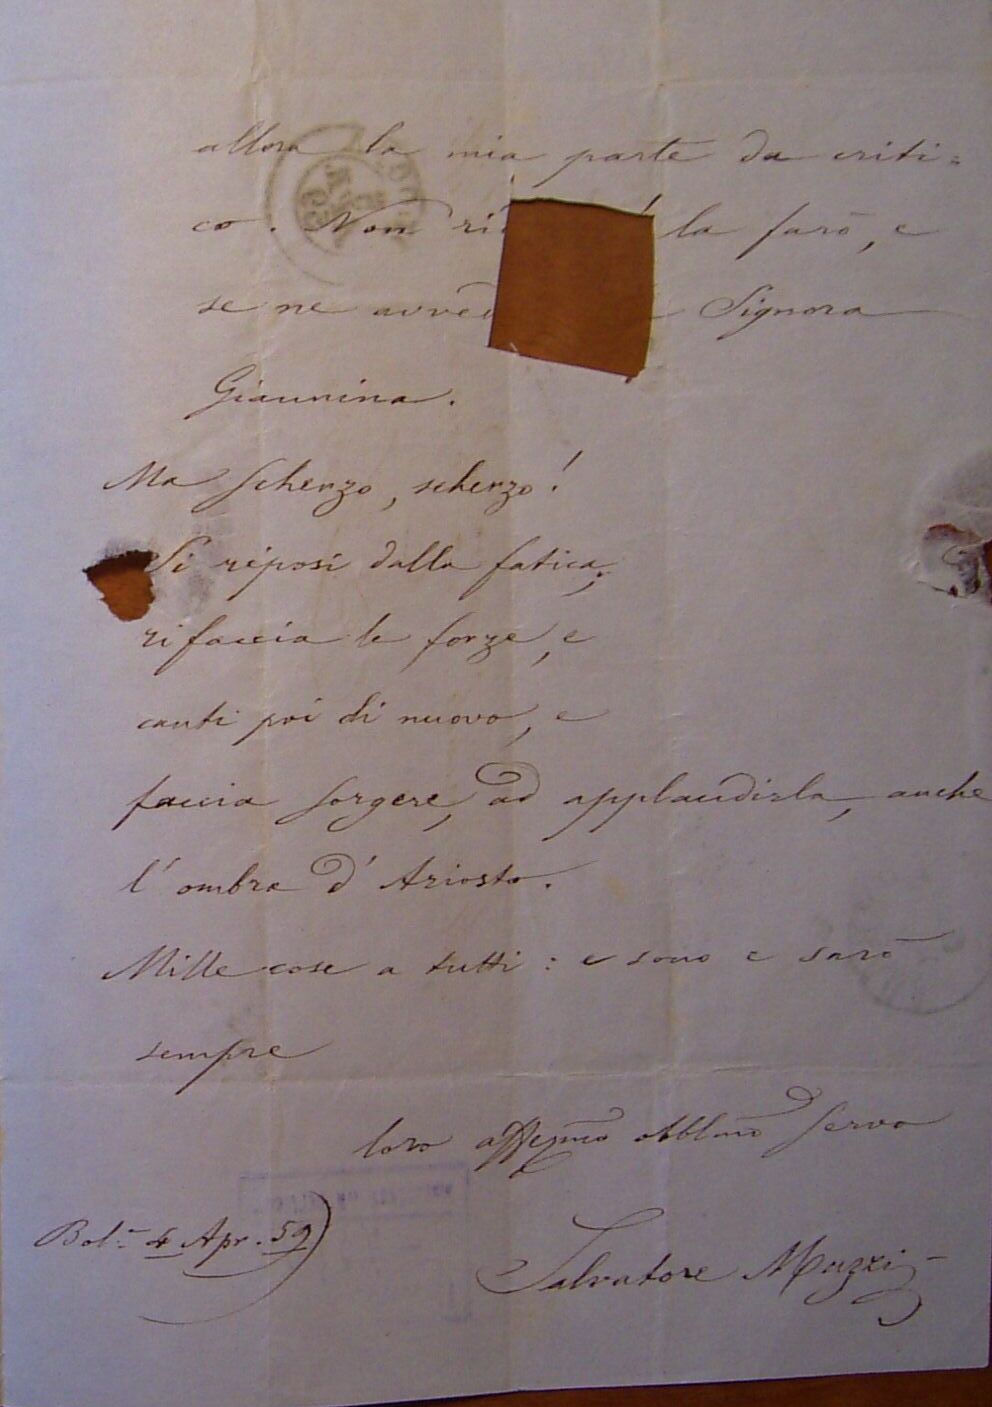 allora la mia parte da criti=
co. Non la farò, e
se ne Signora
Giannina.
Ma scherzo, scherzo!
Si riposi dalla fatica;
rifaccia le forze, e
canti poi di nuovo, e
faccia sorgere, ad applaudirla, anche
l'ombra d'Ariosto.
Mille cose a tutti: e sono e sarò
sempre
loro affez̃mo obblmõ servo
Bol. 4 Apr. 59
Salvatore Muzzi